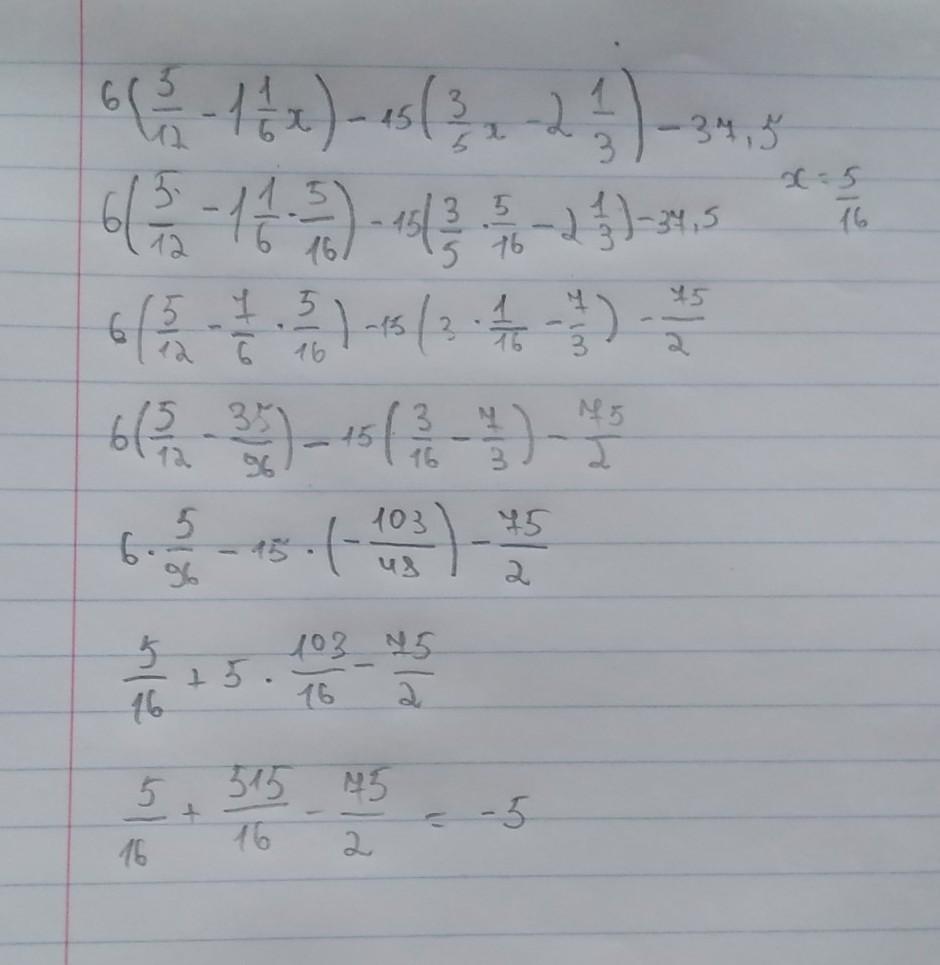 6(5/12 - 1 1/6 x) - 15(3/5 x - 2 1/3) - 37,5
x = 5/16
6(5/12 - 1 1/6 · 5/16) - 15(3/5 · 5/16 - 2 1/3) - 37,5
6(5/12 - 7/6 · 5/16) - 15(3 · 1/16 - 7/3) - 75/2
6(5/12 - 35/96) - 15(3/16 - 7/3) - 75/2
6 · 5/96 - 15 · (- 103/48) - 75/2
5/16 + 5 · 103/16 - 75/2
5/16 + 515/16 - 75/2 = -5